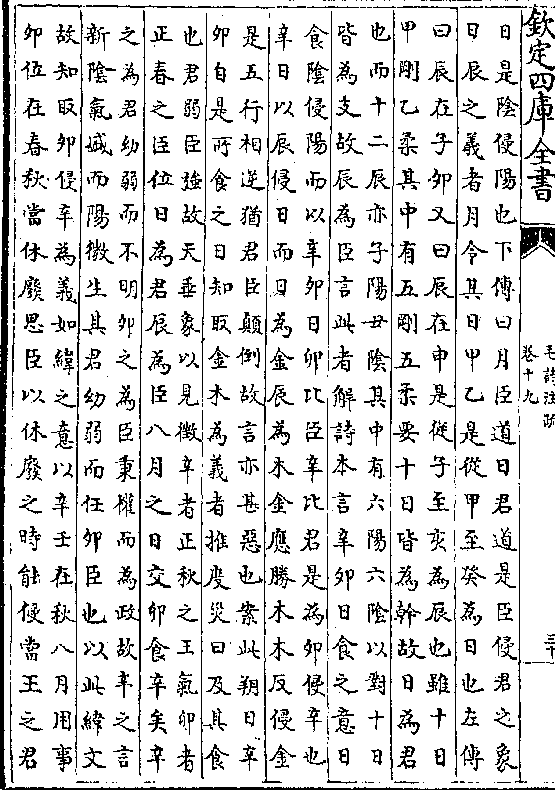 欽定四庫全書
毛詩注疏
卷十九
日是陰侵陽也下傳曰月臣道日君道是臣侵君之象
日辰之義者月令其日甲乙是從甲至癸為日也左傳
曰辰在子卯又曰辰在申是從子至亥為辰也雖十日
甲剛乙柔其中有五剛五柔要十日皆為幹故日為君
也而十二辰亦子陽丑陰其中有六陽六陰以對十日
皆為支故辰為臣言此者解詩本言辛卯日食之意日
食陰侵陽而以辛卯日卯比臣辛比君是為卯侵辛也
辛日以辰侵日而日為金辰為木金應勝木木反侵金
是五行相逆猶君臣顛倒故言亦甚惡也案此朔日辛
卯自是所食之日知取金木為義者推度災曰及其食
也君弱臣強故天垂象以見徵辛者正秋之王氣卯者
正春之臣位日為君辰為臣八月之日交卯食辛矣辛
之為君幼弱而不明卯之為臣秉權而為政故辛之言
新陰氣盛而陽微生其君幼弱而任卯臣也以此緯文
故知取卯侵辛為義如緯之意以辛壬在秋八月用事
卯位在春秋當休廢思臣以休廢之時能侵當王之君